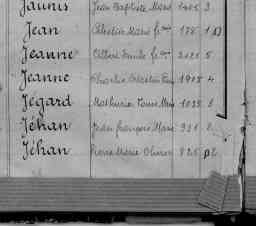 Jaunis Jean Baptiste Marie 1405 3
Jean Célestin Marie 178 1
Jeanne Albert Emile 2021 5
Jeanne Charles Célestin 1905 4
Jégard Mathurin Louis Marie 1035 1
Jéhan Jean François Marie 931 2
Jéhan Pierre Marie Olivier 825 2